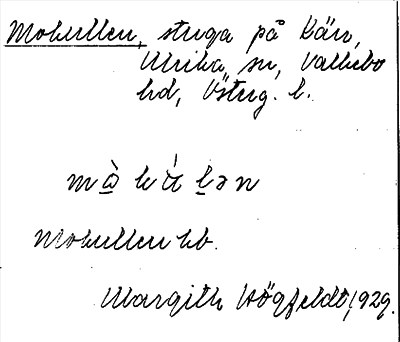 Mokullen, stuga på Kärr,
Ulrika sn, Valkebo
hd, Östug. l.
mò̱ kú ḻən
Mokullen hb.
Margith Högfeldt, 1929.